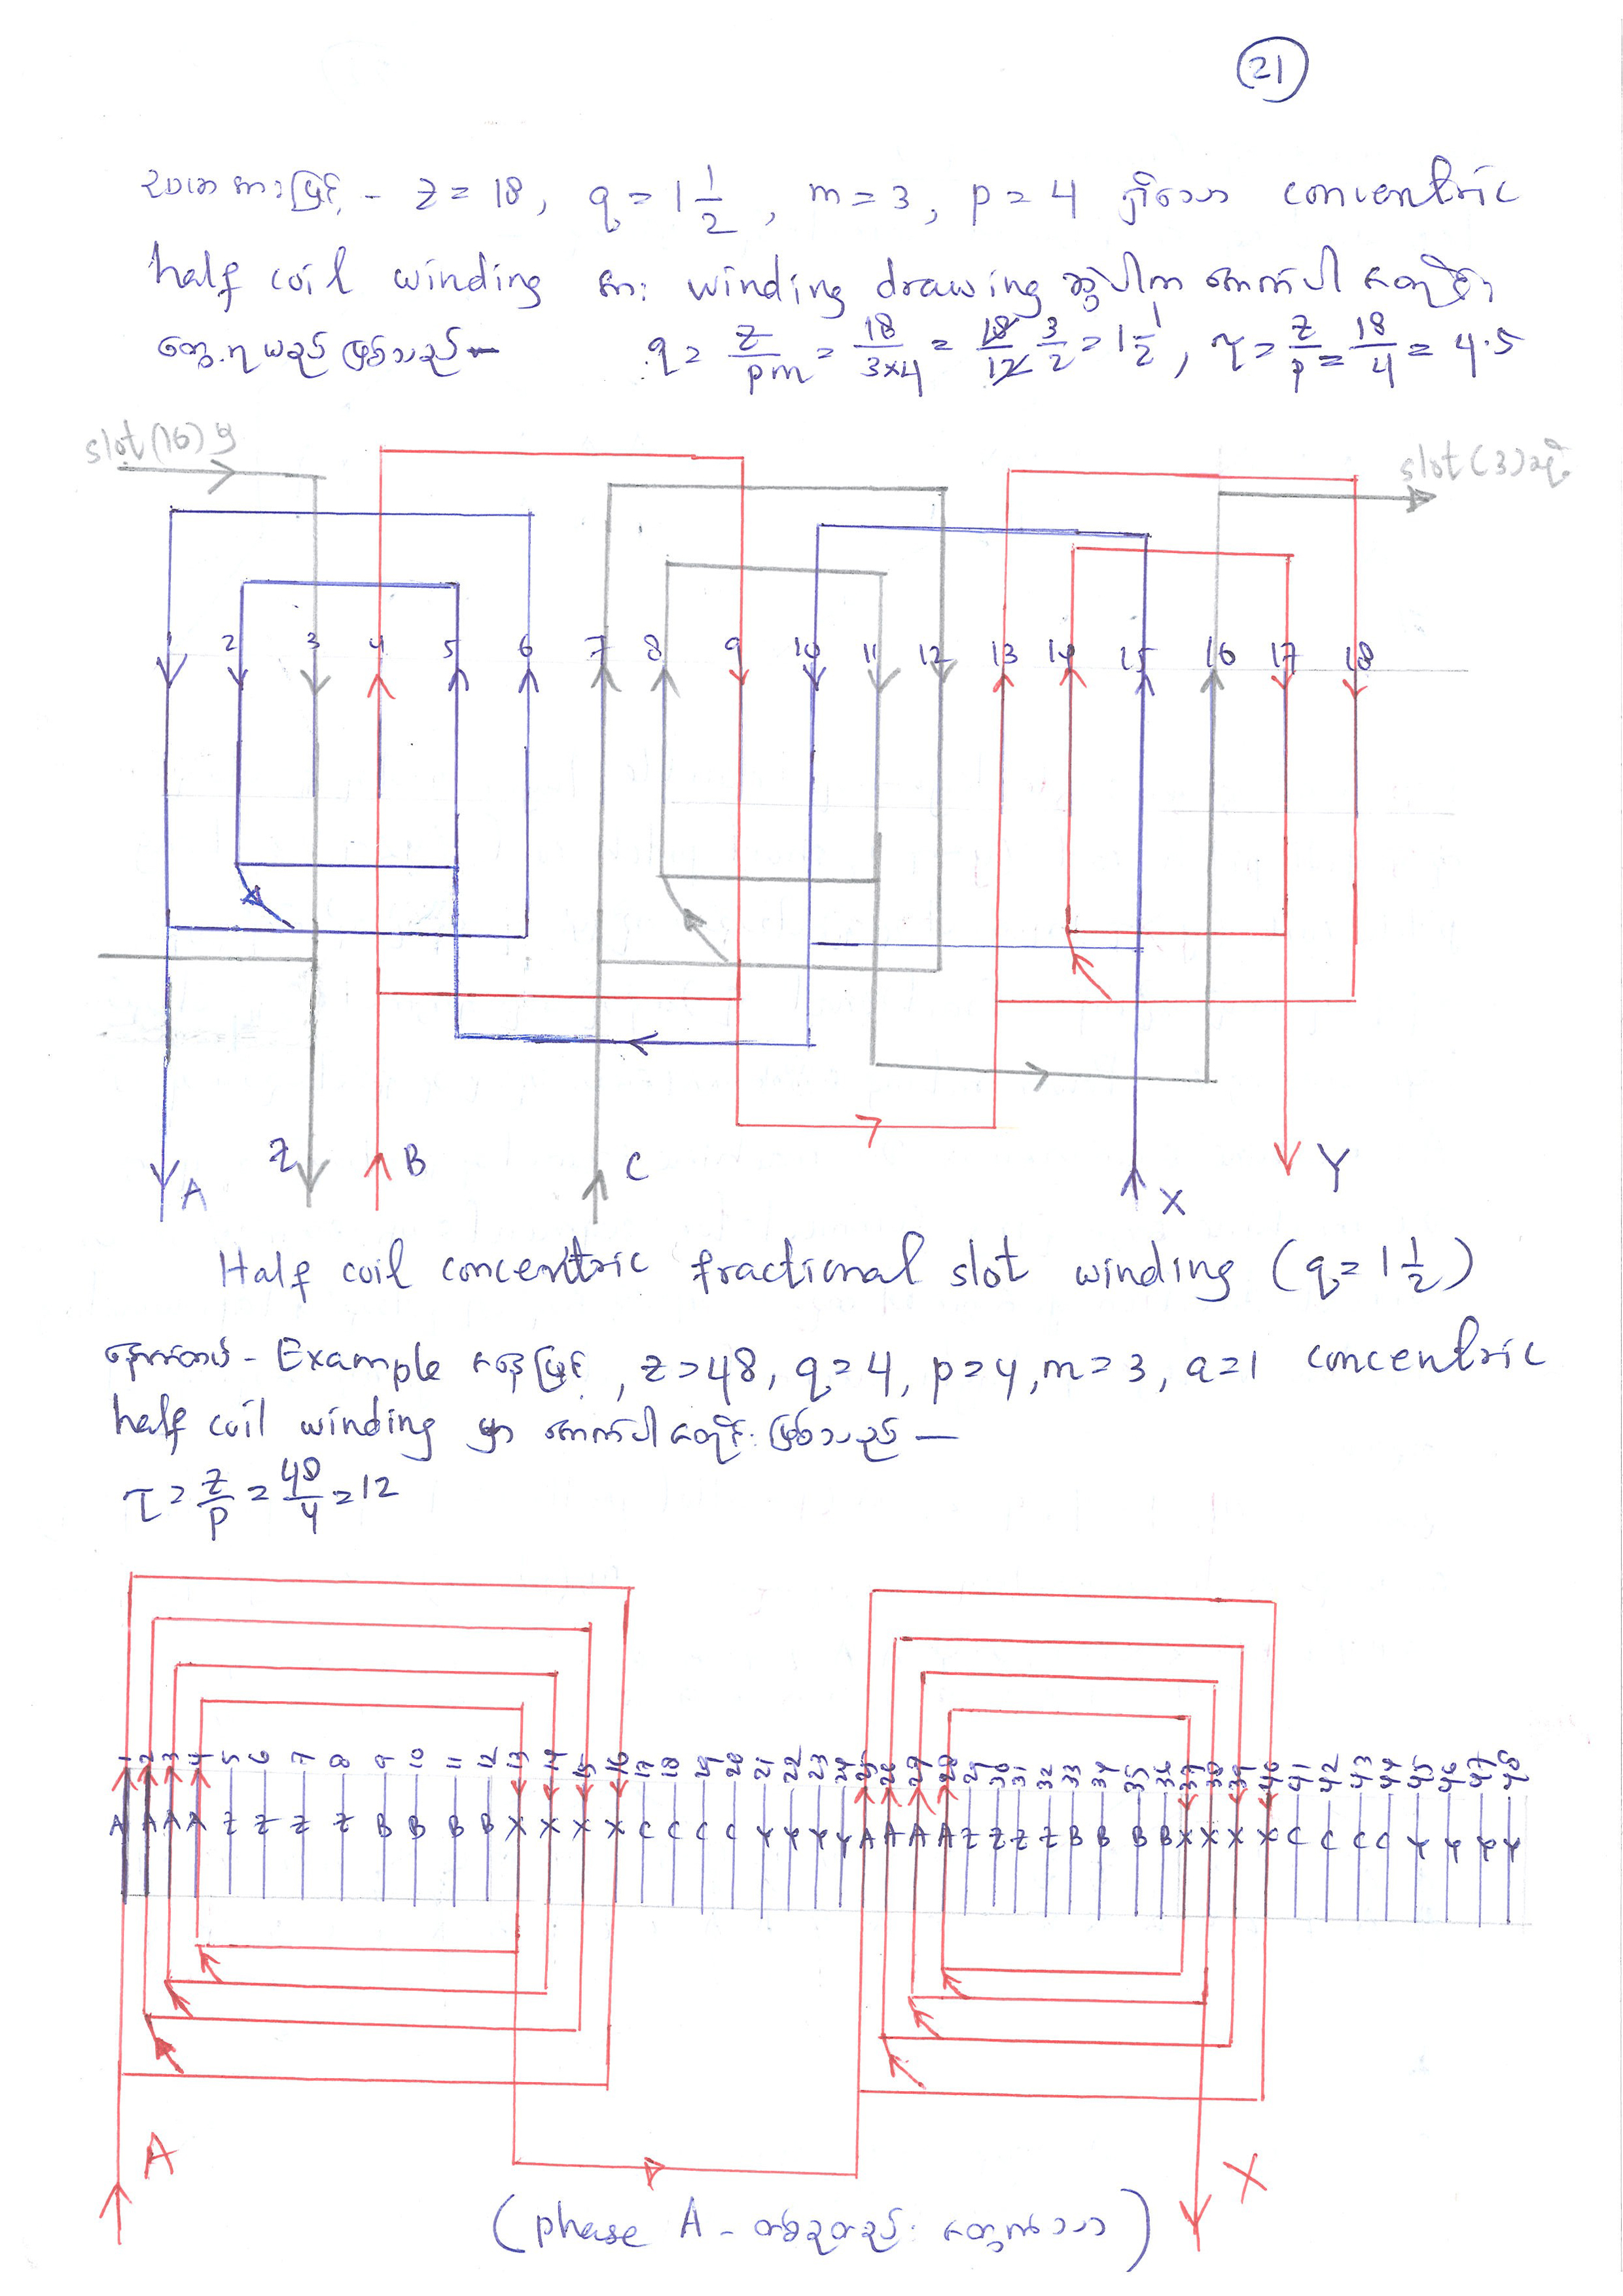 21
ဥပမာအားဖြင့် - z = 18, q = 1 1/2, m = 3, p = 4 ရှိသော concentric
half coil winding အား winding drawing ဆွဲပါက အောက်ပါအတိုင်း
တွေ့ရမည် ဖြစ်သည် — q = z/pm = 18/3×4 = 18/12 3/2 = 1 1/2, τ = z/p = 18/4 = 4.5
slot (16) မှ
slot (3) သို့
1 2 3 4 5 6 7 8 9 10 11 12 13 14 15 16 17 18
A Z B C X Y
Half coil concentric fractional slot winding (q = 1 1/2)
နောက်ထပ် - Example အနေဖြင့်, z = 48, q = 4, p = 4, m = 3, a = 1 concentric
half coil winding မှာ အောက်ပါအတိုင်း ဖြစ်သည် —
τ = z/p = 48/4 = 12
1 2 3 4 5 6 7 8 9 10 11 12 13 14 15 16 17 18 19 20 21 22 23 24 25 26 27 28 29 30 31 32 33 34 35 36 37 38 39 40 41 42 43 44 45 46 47 48
A A A A Z Z Z Z B B B B X X X X C C C C Y Y Y Y A A A A Z Z Z Z B B B B X X X X C C C C Y Y Y Y
A X
(phase A - တစ်ခုတည်း တွေ့